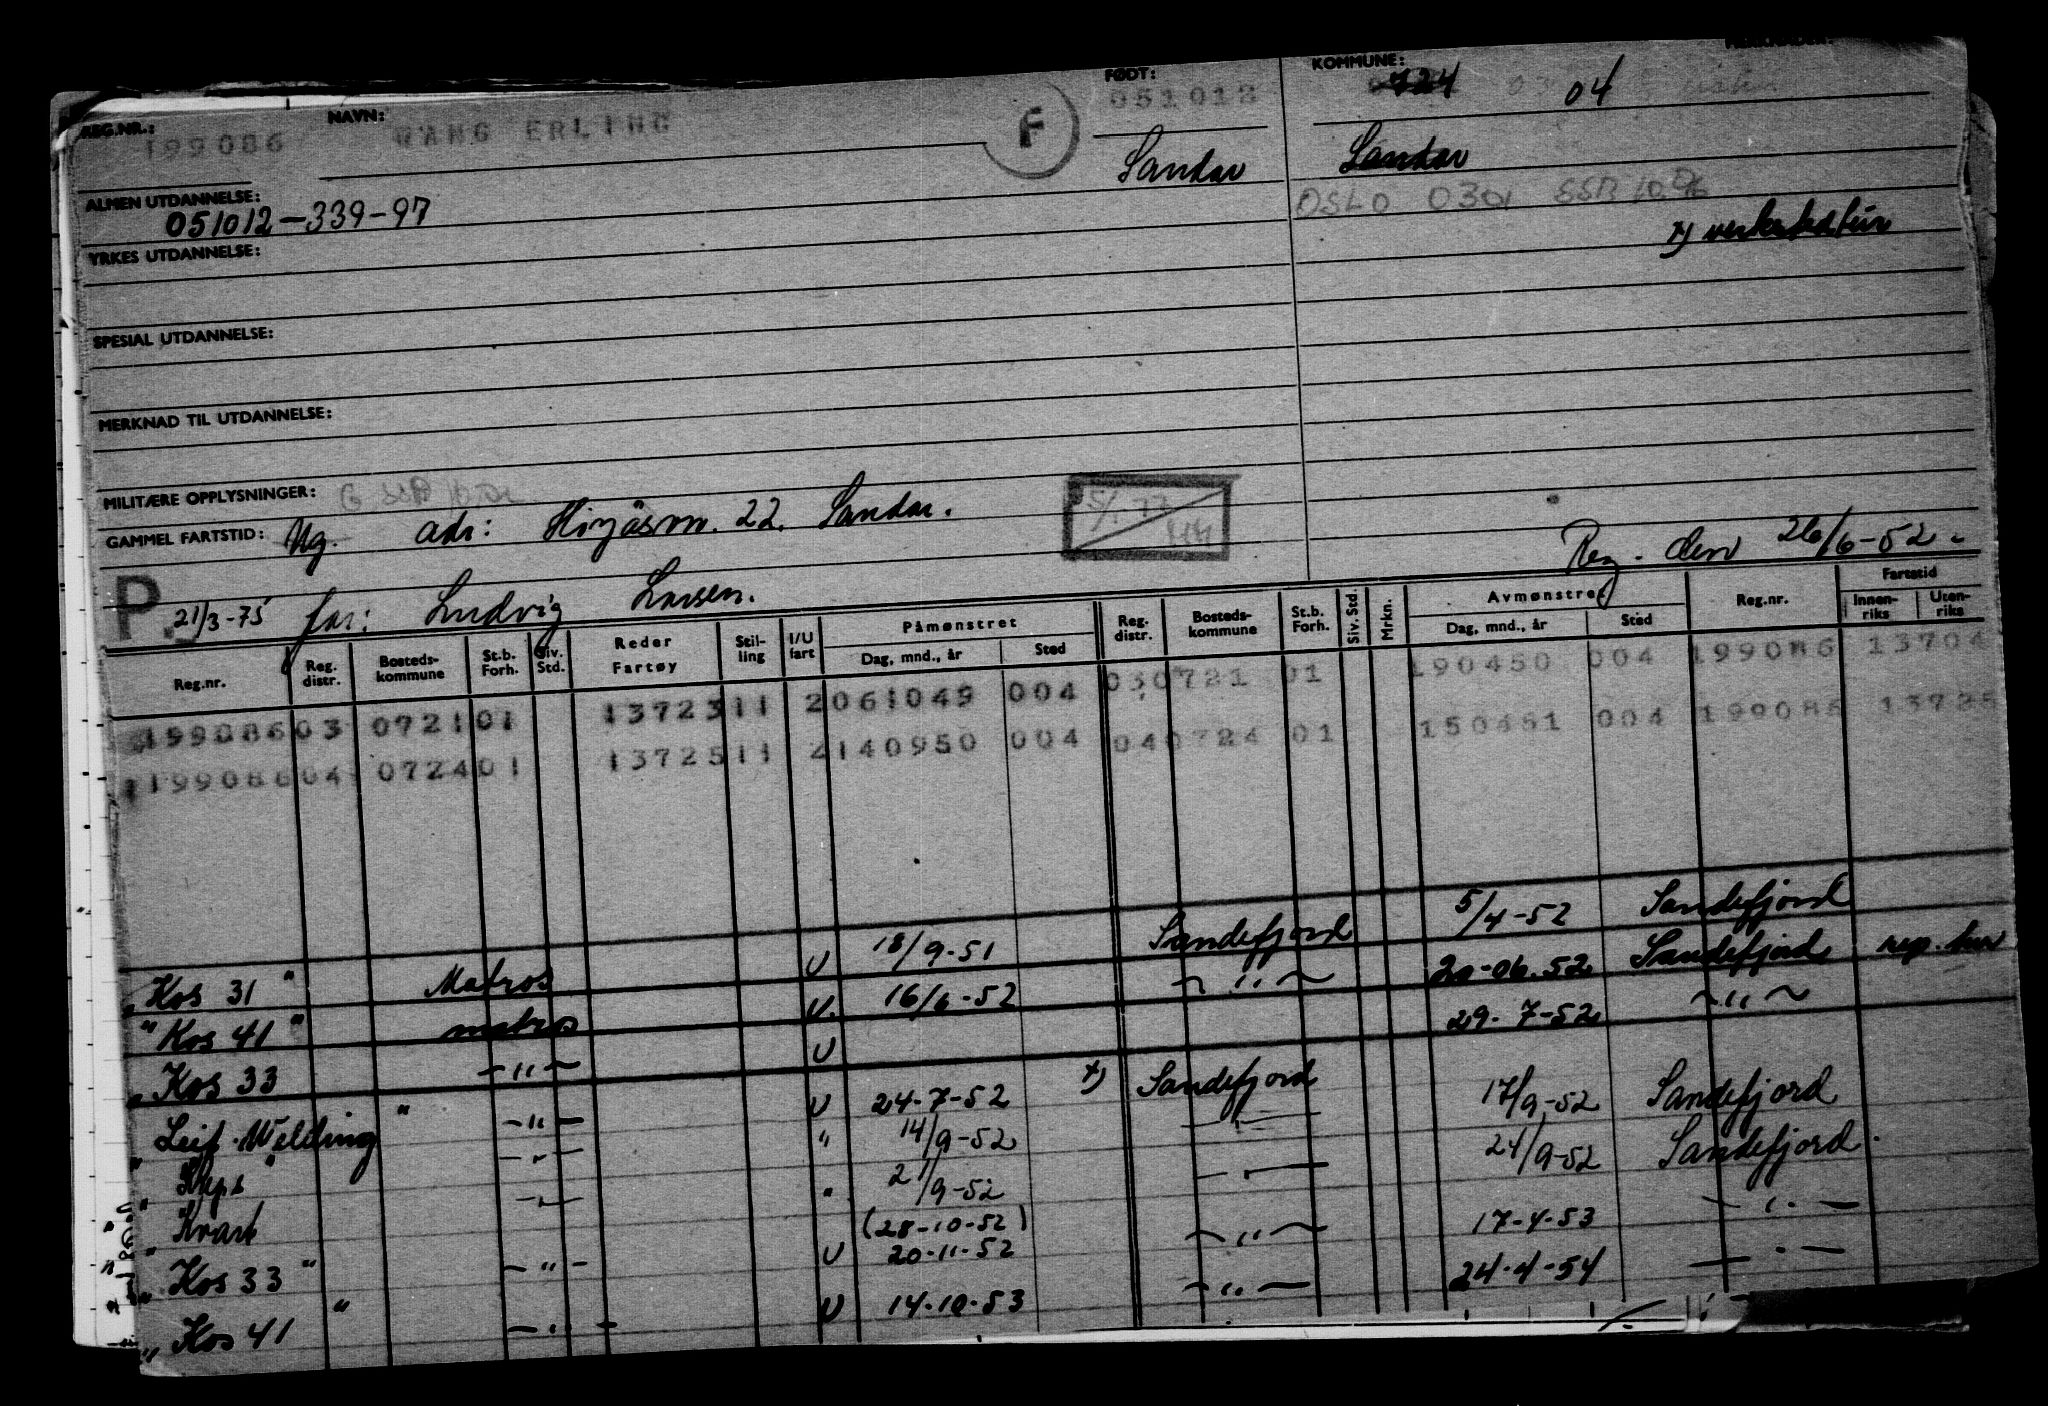 REG.NR.: 199086 NAVN: WANG ERLING F FØDT: 051012 KOMMUNE: 724 04 MERKNADER:
Sandar Sandar
ALMEN UTDANNELSE: 051012-339-97 OSLO 0301 SSB
YRKES UTDANNELSE:
SPESIAL UTDANNELSE:
MERKNAD TIL UTDANNELSE:
MILITÆRE OPPLYSNINGER:
GAMMEL FARTSTID: Ug. adr: 22. Sandar. Reg. den 26/6-52.
P. 21/3-75 far: Ludvig Larsen.
Reg.nr. Reg. distr. Bosteds-kommune St.b. Forh. Siv. Std. Reder Fartøy Stil-ling I/U fart Påmønstret Dag, mnd., år Sted Reg. distr. Bosteds-kommune St.b. Forh. Siv. Std. Mrkn. Avmønstret Dag, mnd., år Sted Reg.nr. Fartstid Innen-riks Uten-riks
199086 03 0721 01 13723 11 2 061049 004 03 0721 01 190450 004 199086 13704
199086 04 0724 01 13725 11 2 140950 004 04 0724 01 150451 004 199086 13725
„Kos 31" Matros U 18/9-51 Sandefjord 5/4-52 Sandefjord
"Kos 41" matros U. 16/6-52 -"- 20-06.52 Sandefjord rep. her
„Kos 33 -"- U 29-7-52 -"-
„Leif Welding" -"- U 24-7-52 x) Sandefjord 17/9-52 Sandefjord
„ " -"- " 14/9-52 -"- 24/9-52 Sandefjord.
„Kvart -"- " 21/9-52 -"-
„Kos 33" -"- U (28-10-52) 20-11-52 -"- 17-4-53 -"-
„Kos 41" -"- U 14-10-53 -"- 24-4-54 -"-